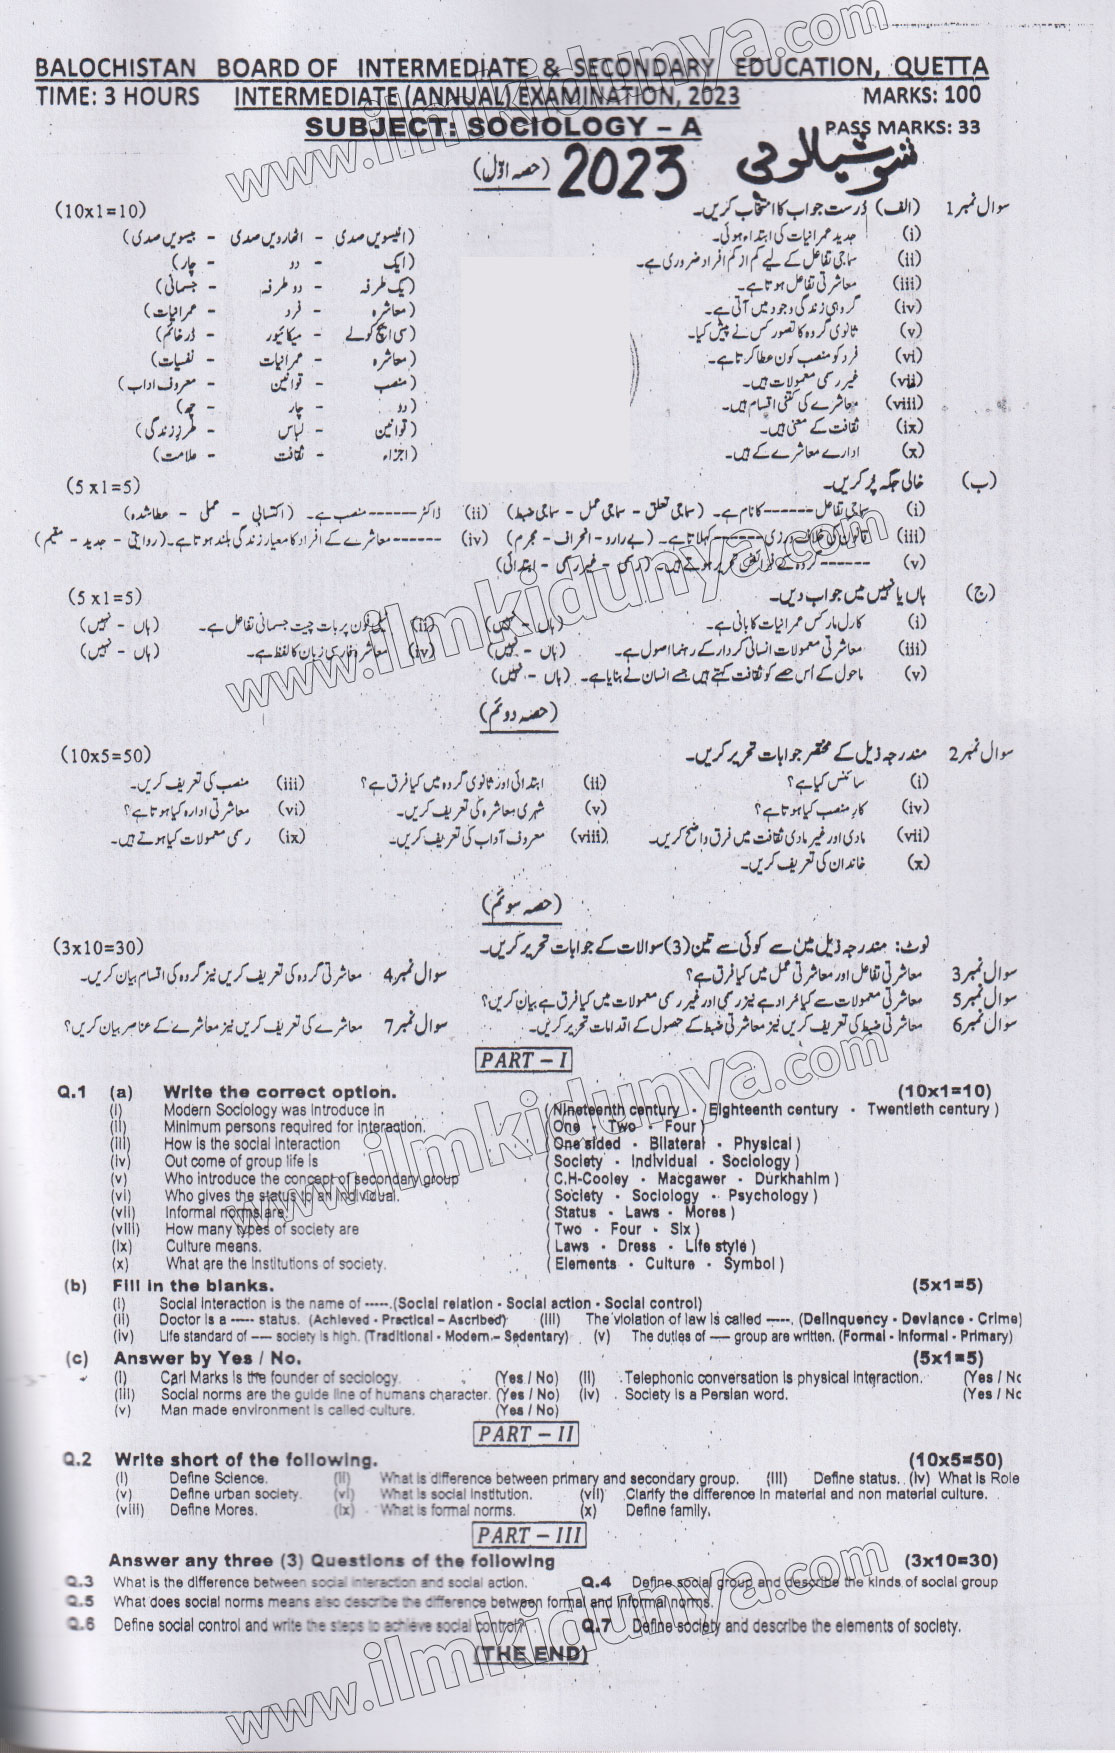 BALOCHISTAN BOARD OF INTERMEDIATE & SECONDARY EDUCATION, QUETTA
TIME: 3 HOURS INTERMEDIATE (ANNUAL) EXAMINATION, 2023 MARKS: 100
SUBJECT: SOCIOLOGY – A PASS MARKS: 33
(حصہ اوّل) 2023 سوشیالوجی
سوال نمبر 1 (الف) درست جواب کا انتخاب کریں۔ (10x1=10)
(i) جدید عمرانیات کی ابتداء ہوئی۔ (انیسویں صدی - اٹھارویں صدی - بیسویں صدی)
(ii) سماجی تفاعل کے لیے کم از کم افراد ضروری ہے۔ (ایک - دو - چار)
(iii) معاشرتی تفاعل ہوتا ہے۔ (یک طرفہ - دو طرفہ - جسمانی)
(iv) گروہی زندگی وجود میں آتی ہے۔ (معاشرہ - فرد - عمرانیات)
(v) ثانوی گروہ کا تصور کس نے پیش کیا۔ (سی ایچ کولے - میکائیور - درخائم)
(vi) فرد کو منصب کون عطا کرتا ہے۔ (معاشرہ - عمرانیات - نفسیات)
(vii) غیر رسمی معمولات ہیں۔ (منصب - قوانین - معروف اداب)
(viii) معاشرے کی کتنی اقسام ہیں۔ (دو - چار - چھ)
(ix) ثقافت کے معنی ہیں۔ (قوانین - لباس - طرز زندگی)
(x) ادارے معاشرے کے ہیں۔ (اجزاء - ثقافت - علامت)
(ب) خالی جگہ پُر کریں۔ (5 x1=5)
(i) سماجی تفاعل ------ کا نام ہے۔ (سماجی تعلق - سماجی عمل - سماجی ضبط) (ii) ڈاکٹر ------ منصب ہے۔ (اکتسابی - عملی - عطاشدہ)
(iii) قانون کی خلاف ورزی ------ کہلاتا ہے۔ (بے راہ رو - انحراف - مجرم) (iv) ------ معاشرے کے افراد کا معیار زندگی بلند ہوتا ہے۔ (روایتی - جدید - مقیم)
(v) ------ گروہ کے فرائض تحریر ہوتے ہیں۔ (رسمی - غیر رسمی - ابتدائی)
(ج) ہاں یا نہیں میں جواب دیں۔ (5 x1=5)
(i) کارل مارکس عمرانیات کا بانی ہے۔ (ہاں - نہیں) (ii) ٹیلی فون پر بات چیت جسمانی تفاعل ہے۔ (ہاں - نہیں)
(iii) معاشرتی معمولات انسانی کردار کے رہنما اصول ہے۔ (ہاں - نہیں) (iv) معاشرہ فارسی زبان کا لفظ ہے۔ (ہاں - نہیں)
(v) ماحول کے اُس حصے کو ثقافت کہتے ہیں جسے انسان نے بنایا ہے۔ (ہاں - نہیں)
(حصہ دوئم)
سوال نمبر 2 مندرجہ ذیل کے مختصر جوابات تحریر کریں۔ (10x5=50)
(i) سائنس کیا ہے؟ (ii) ابتدائی اور ثانوی گروہ میں کیا فرق ہے؟ (iii) منصب کی تعریف کریں۔
(iv) کار منصب کیا ہوتا ہے؟ (v) شہری معاشرہ کی تعریف کریں۔ (vi) معاشرتی ادارہ کیا ہوتا ہے؟
(vii) مادی اور غیر مادی ثقافت میں فرق واضح کریں۔ (viii) معروف آداب کی تعریف کریں۔ (ix) رسمی معمولات کیا ہوتے ہیں۔
(x) خاندان کی تعریف کریں۔
(حصہ سوئم)
نوٹ: مندرجہ ذیل میں سے کوئی سے تین (3) سوالات کے جوابات تحریر کریں۔ (3x10=30)
سوال نمبر 3 معاشرتی تفاعل اور معاشرتی عمل میں کیا فرق ہے؟ سوال نمبر 4 معاشرتی گروہ کی تعریف کریں نیز گروہ کی اقسام بیان کریں۔
سوال نمبر 5 معاشرتی معمولات سے کیا مراد ہے نیز رسمی اور غیر رسمی معمولات میں کیا فرق ہے بیان کریں؟
سوال نمبر 6 معاشرتی ضبط کی تعریف کریں نیز معاشرتی ضبط کے حصول کے اقدامات تحریر کریں۔ سوال نمبر 7 معاشرے کی تعریف کریں نیز معاشرے کے عناصر بیان کریں؟
PART – I
Q.1 (a) Write the correct option. (10x1=10)
(i) Modern Sociology was introduce in (Nineteenth century - Eighteenth century - Twentieth century )
(ii) Minimum persons required for interaction. (One - Two - Four )
(iii) How is the social interaction (One sided - Bilateral - Physical )
(iv) Out come of group life is (Society - Individual - Sociology )
(v) Who introduce the concept of secondary group (C.H-Cooley - Macgawer - Durkhahim )
(vi) Who gives the status to an individual. (Society - Sociology - Psychology )
(vii) Informal norms are (Status - Laws - Mores )
(viii) How many types of society are (Two - Four - Six )
(ix) Culture means. (Laws - Dress - Life style )
(x) What are the institutions of society. (Elements - Culture - Symbol )
(b) Fill in the blanks. (5x1=5)
(i) Social interaction is the name of -----.(Social relation - Social action - Social control)
(ii) Doctor is a ----- status. (Achieved - Practical – Ascribed) (iii) The violation of law is called -----. (Delinquency - Deviance - Crime)
(iv) Life standard of ---- society is high. (Traditional - Modern – Sedentary) (v) The duties of ---- group are written. (Formal - Informal - Primary)
(c) Answer by Yes / No. (5x1=5)
(i) Carl Marks is the founder of sociology. (Yes / No) (ii) Telephonic conversation is physical interaction. (Yes / Nc
(iii) Social norms are the guide line of humans character. (Yes / No) (iv) Society is a Persian word. (Yes / Nc
(v) Man made environment is called culture. (Yes / No)
PART – II
Q.2 Write short of the following. (10x5=50)
(i) Define Science. (ii) What is difference between primary and secondary group. (iii) Define status. (iv) What is Role
(v) Define urban society. (vi) What is social institution. (vii) Clarify the difference in material and non material culture.
(viii) Define Mores. (ix) What is formal norms. (x) Define family.
PART – III
Answer any three (3) Questions of the following (3x10=30)
Q.3 What is the difference between social interaction and social action. Q.4 Define social group and describe the kinds of social group
Q.5 What does social norms means also describe the difference between formal and informal norms.
Q.6 Define social control and write the steps to achieve social control? Q.7 Define society and describe the elements of society.
(THE END)
www.ilmkidunya.com
www.ilmkidunya.com
www.ilmkidunya.com
www.ilmkidunya.com